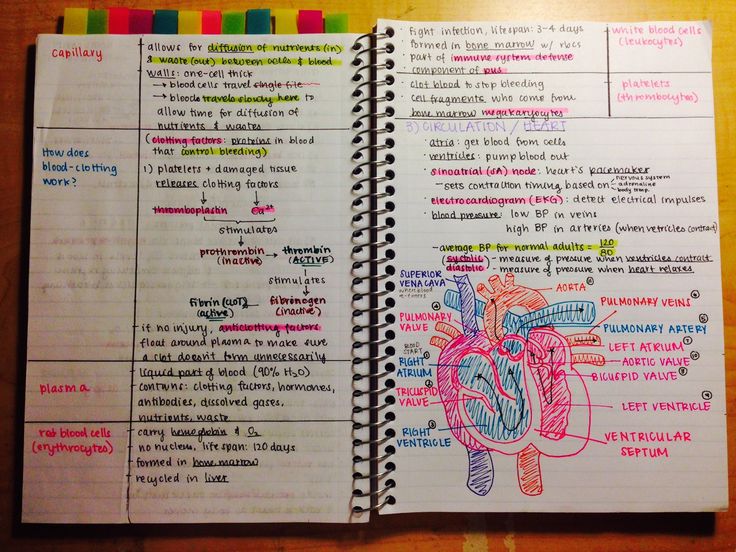 capillary
allows for diffusion of nutrients (in)
& waste (out) between cells & blood
walls: one-cell thick
→ blood cells travel single file
→ blood travels slowly here to
allow time for diffusion of
nutrients & wastes
How does
blood-clotting
work?
(clotting factors: proteins in blood
that control bleeding)
1) platelets + damaged tissue
releases clotting factors
thromboplastin Ca2+
stimulates
prothrombin → thrombin
(inactive) (ACTIVE)
stimulates
Fibrin (CLOT) ← fibrinogen
(active) (inactive)
if no injury, anticlotting factors
float around plasma to make sure
a clot doesn't form unnecessarily
plasma
liquid part of blood (90% H2O)
contains: clotting factors, hormones,
antibodies, dissolved gases,
nutrients, waste
red blood cells
(erythrocytes)
carry hemoglobin & O2
no nucleus, lifespan: 120 days
formed in bone marrow
recycled in liver
fight infection, lifespan: 3-4 days
formed in bone marrow w/ rbcs
part of immune system defense
component of pus
white blood cells
(leukocytes)
clot blood to stop bleeding
cell fragments who come from
bone marrow megakaryocytes
platelets
(thrombocytes)
3) CIRCULATION / HEART
· atria: get blood from cells
· ventricles: pump blood out
· sinoatrial (SA) node: heart's pacemaker
- sets contraction timing based on
nervous system
adrenaline
body temp.
· electrocardiogram (EKG): detect electrical impulses
· blood pressure: low BP in veins
high BP in arteries (when vetricles contract)
- average BP for normal adults = 120/80
systolic - measure of pressure when ventricles contract
diastolic - measure of pressure when heart relaxes
SUPERIOR
VENA CAVA
AORTA
PULMONARY VEINS
PULMONARY
VALVE
PULMONARY ARTERY
LEFT ATRIUM
BLOOD
START
AORTIC VALVE
RIGHT
ATRIUM
BICUSPID VALVE
TRICUSPID
VALVE
LEFT VENTRICLE
RIGHT
VENTRICLE
VENTRICULAR
SEPTUM